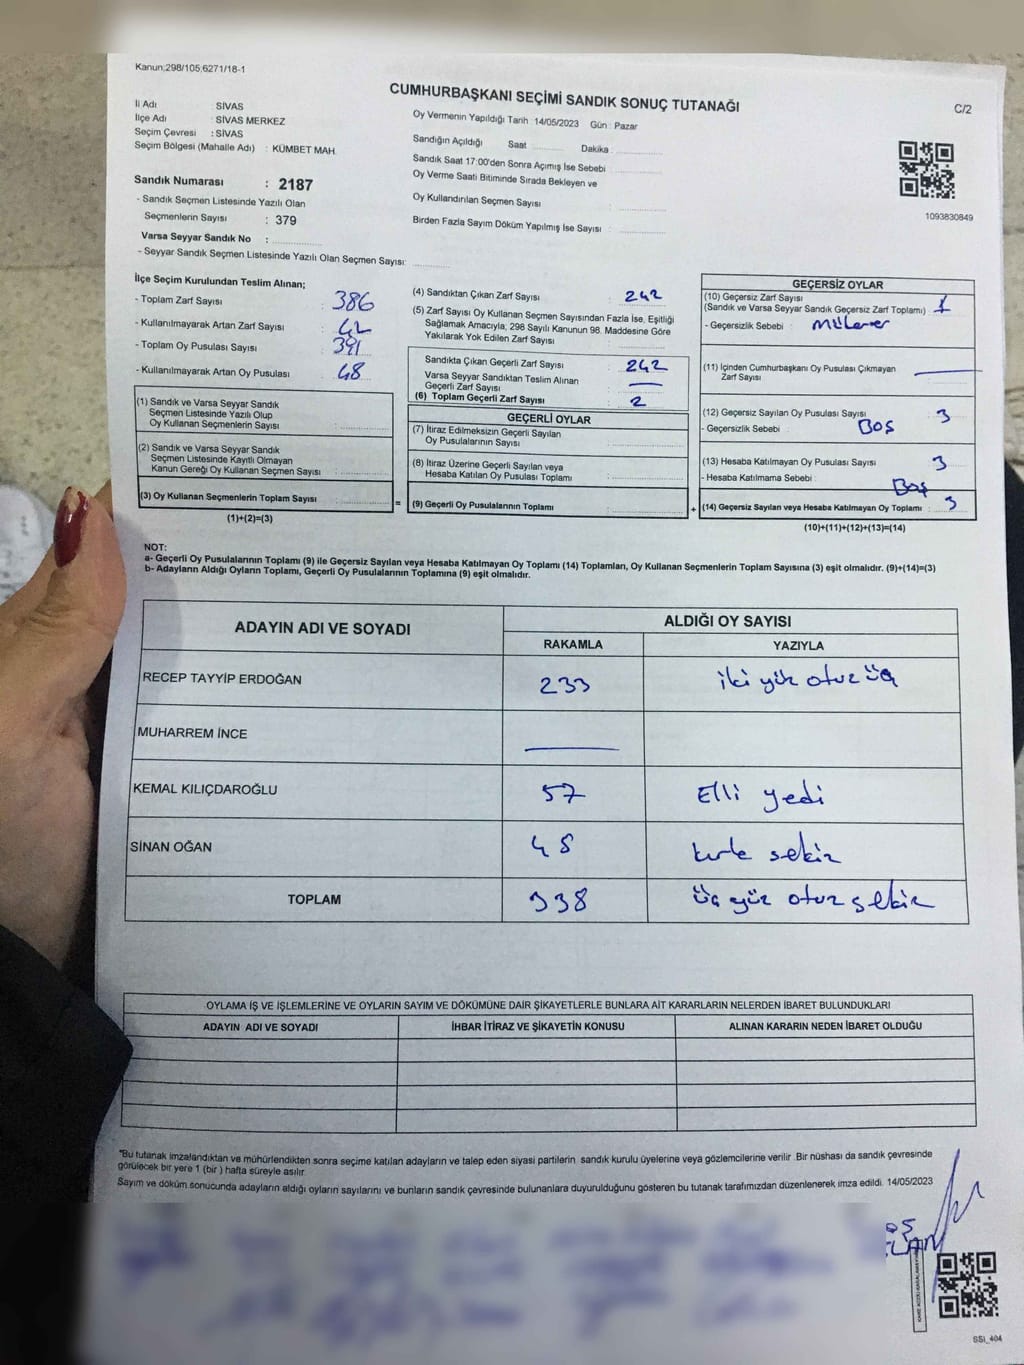 Kanun:298/105,6271/18-1
CUMHURBAŞKANI SEÇİMİ SANDIK SONUÇ TUTANAĞI
C/2
İl Adı : SİVAS
İlçe Adı : SİVAS MERKEZ
Seçim Çevresi : SİVAS
Seçim Bölgesi (Mahalle Adı) : KÜMBET MAH.
Sandık Numarası : 2187
- Sandık Seçmen Listesinde Yazılı Olan
Seçmenlerin Sayısı : 379
Varsa Seyyar Sandık No :
- Seyyar Sandık Seçmen Listesinde Yazılı Olan Seçmen Sayısı:
Oy Vermenin Yapıldığı Tarih 14/05/2023 Gün : Pazar
Sandığın Açıldığı Saat Dakika :
Sandık Saat 17:00'den Sonra Açımış İse Sebebi
Oy Verme Saati Bitiminde Sırada Bekleyen ve
Oy Kullandırılan Seçmen Sayısı :
Birden Fazla Sayım Döküm Yapılmış İse Sayısı :
1093830849
İlçe Seçim Kurulundan Teslim Alınan;
- Toplam Zarf Sayısı : 386
- Kullanılmayarak Artan Zarf Sayısı : 42
- Toplam Oy Pusulası Sayısı : 391
- Kullanılmayarak Artan Oy Pusulası : 48
(1) Sandık ve Varsa Seyyar Sandık
Seçmen Listesinde Yazılı Olup
Oy Kullanan Seçmenlerin Sayısı :
(2) Sandık ve Varsa Seyyar Sandık
Seçmen Listesinde Kayıtlı Olmayan
Kanun Gereği Oy Kullanan Seçmen Sayısı :
(3) Oy Kullanan Seçmenlerin Toplam Sayısı :
(1)+(2)=(3)
=
(4) Sandıktan Çıkan Zarf Sayısı : 242
(5) Zarf Sayısı Oy Kullanan Seçmen Sayısından Fazla İse, Eşitliği
Sağlamak Amacıyla; 298 Sayılı Kanunun 98. Maddesine Göre
Yakılarak Yok Edilen Zarf Sayısı :
Sandıkta Çıkan Geçerli Zarf Sayısı : 242
Varsa Seyyar Sandıktan Teslim Alınan
Geçerli Zarf Sayısı : —
(6) Toplam Geçerli Zarf Sayısı : 2
GEÇERLİ OYLAR
(7) İtiraz Edilmeksizin Geçerli Sayılan
Oy Pusulalarının Sayısı :
(8) İtiraz Üzerine Geçerli Sayılan veya
Hesaba Katılan Oy Pusulası Toplamı :
(9) Geçerli Oy Pusulalarının Toplamı :
+
GEÇERSİZ OYLAR
(10) Geçersiz Zarf Sayısı
(Sandık ve Varsa Seyyar Sandık Geçersiz Zarf Toplamı) : 1
- Geçersizlik Sebebi :
(11) İçinden Cumhurbaşkanı Oy Pusulası Çıkmayan
Zarf Sayısı : —
(12) Geçersiz Sayılan Oy Pusulası Sayısı : 3
- Geçersizlik Sebebi : Boş
(13) Hesaba Katılmayan Oy Pusulası Sayısı : 3
- Hesaba Katılmama Sebebi : Boş
(14) Geçersiz Sayılan veya Hesaba Katılmayan Oy Toplamı : 3
(10)+(11)+(12)+(13)=(14)
NOT:
a- Geçerli Oy Pusulalarının Toplamı (9) ile Geçersiz Sayılan veya Hesaba Katılmayan Oy Toplamı (14) Toplamları, Oy Kullanan Seçmenlerin Toplam Sayısına (3) eşit olmalıdır. (9)+(14)=(3)
b- Adayların Aldığı Oyların Toplamı, Geçerli Oy Pusulalarının Toplamına (9) eşit olmalıdır.
ADAYIN ADI VE SOYADI
ALDIĞI OY SAYISI
RAKAMLA YAZIYLA
RECEP TAYYİP ERDOĞAN 233 iki yüz otuz üç
MUHARREM İNCE —
KEMAL KILIÇDAROĞLU 57 Elli yedi
SİNAN OĞAN 48 kırk sekiz
TOPLAM 338 üç yüz otuz sekiz
OYLAMA İŞ VE İŞLEMLERİNE VE OYLARIN SAYIM VE DÖKÜMÜNE DAİR ŞİKAYETLERLE BUNLARA AİT KARARLARIN NELERDEN İBARET BULUNDUKLARI
ADAYIN ADI VE SOYADI İHBAR İTİRAZ VE ŞİKAYETİN KONUSU ALINAN KARARIN NEDEN İBARET OLDUĞU
"Bu tutanak imzalandıktan ve mühürlendikten sonra seçime katılan adayların ve talep eden siyasi partilerin sandık kurulu üyelerine veya gözlemcilerine verilir. Bir nüshası da sandık çevresinde
görülecek bir yere 1 (bir ) hafta süreyle asılır.
Sayım ve döküm sonucunda adayların aldığı oyların sayılarını ve bunların sandık çevresinde bulunanlara duyurulduğunu gösteren bu tutanak tarafımızdan düzenlenerek imza edildi. 14/05/2023
SSI_404